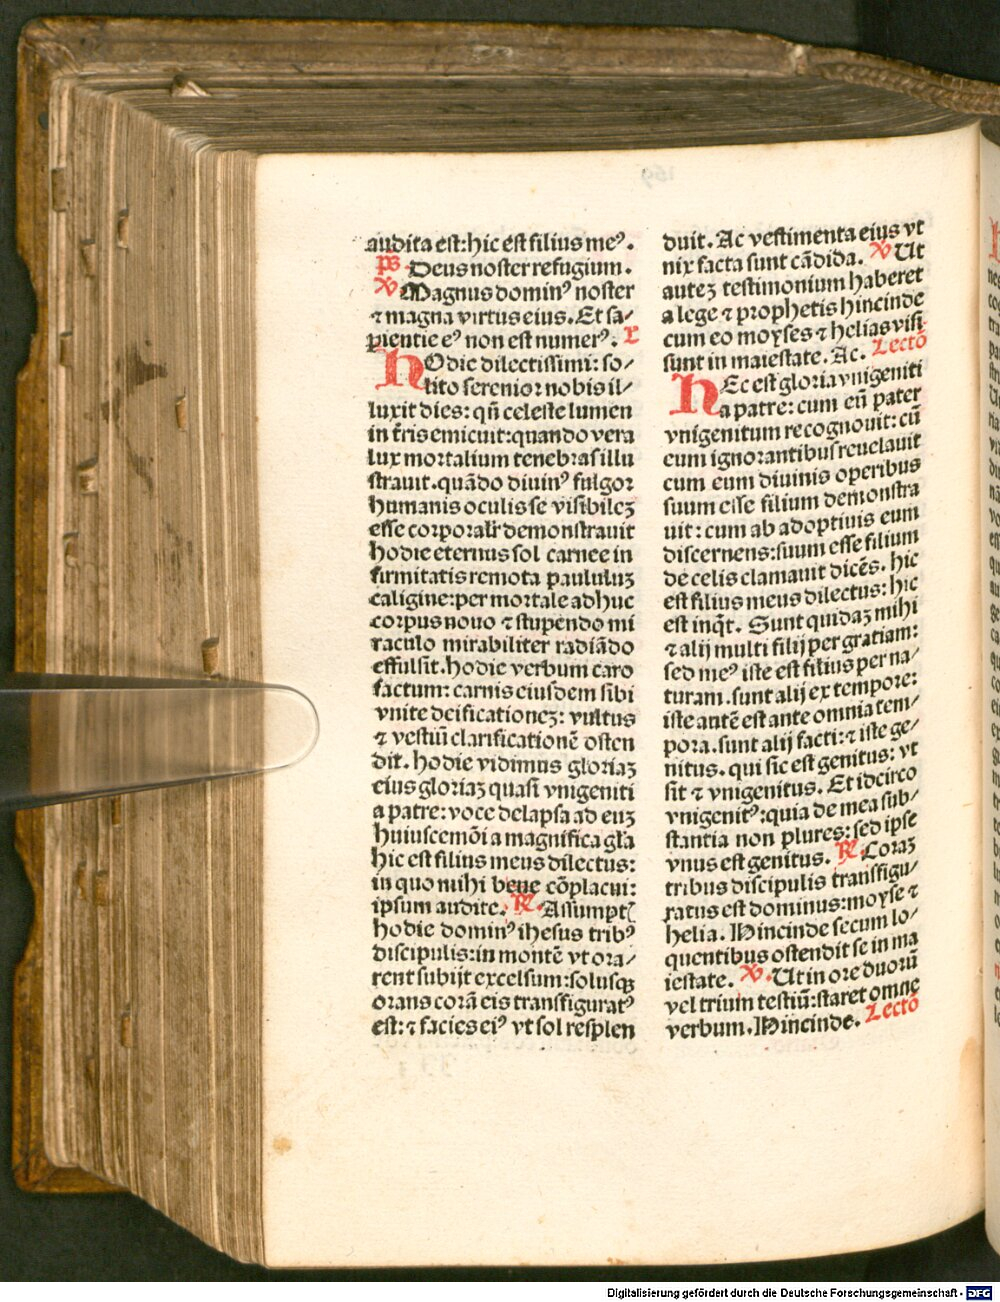 audita est:hic est filius meꝰ.
p̄s Deus noster refugium.
℣ Magnus dominꝰ noster
⁊ magna virtus eius. Et sa/
pientie eꝰ non est numerꝰ. r
HOdie dilectissimi: so/
lito serenior nobis il/
luxit dies: qn̄ celeste lumen
in t̄ris emicuit:quando vera
lux mortalium tenebras illu
strauit. quādo diuinꝰ fulgor
humanis oculis se visibileʒ
esse corporalr̄ demonstrauit
hodie eternus sol carnee in
firmitatis remota paululuʒ
caligine:per mortale adhuc
corpus nouo ⁊ stupendo mi
raculo mirabiliter radiādo
effulsit. hodie verbum caro
factum: carnis eiusdem sibi
vnite deificationeʒ: vultus
⁊ vestiū clarificationē osten
dit. hodie vidimus gloriaʒ
eius gloriaʒ quasi vnigeniti
a patre: voce delapsa ad euʒ
huiuscemōi a magnifica gl̄a
hic est filius meus dilectus:
in quo mihi bene cōplacui:
ipsum audite. ℟. Assumptꝭ
hodie dominꝰ ihesus tribꝰ
discipulis:in montē vt ora/
rent subijt excelsum:solusqꝫ
orans corā eis transfiguratꝰ
est: ⁊ facies eiꝰ vt sol resplen
duit. Ac vestimenta eius vt
nix facta sunt cādida. ℣ Ut
auteʒ testimonium haberet
a lege ⁊ prophetis hincinde
cum eo moyses ⁊ helias visi
sunt in maiestate. Ac. Lectō
HEc est gloria vnigeniti
a patre: cum eū pater
vnigenitum recognouit: cū
eum ignorantibus reuelauit
cum eum diuinis operibus
suum esse filium demonstra
uit: cum ab adoptiuis eum
discernens:suum esse filium
de celis clamauit dicēs. hic
est filius meus dilectus: hic
est inqt̄. Sunt quidaʒ mihi
⁊ alij multi filij per gratiam:
sed meꝰ iste est filius per na/
turam. sunt alij ex tempore:
iste antē est ante omnia tem/
pora. sunt alij facti: ⁊ iste ge/
nitus. qui sic est genitus: vt
sit ⁊ vnigenitus. Et idcirco
vnigenitꝰ:quia de mea sub/
stantia non plures: sed ipse
vnus est genitus. ℟. Coraʒ
tribus discipulis transfigu/
ratus est dominus:moyse ⁊
helia. Hincinde secum lo/
quentibus ostendit se in ma
iestate. ℣. Ut in ore duorū
vel trium testiū:staret omne
verbum. Hincinde. Lectō
Digitalisierung gefördert durch die Deutsche Forschungsgemeinschaft - DFG